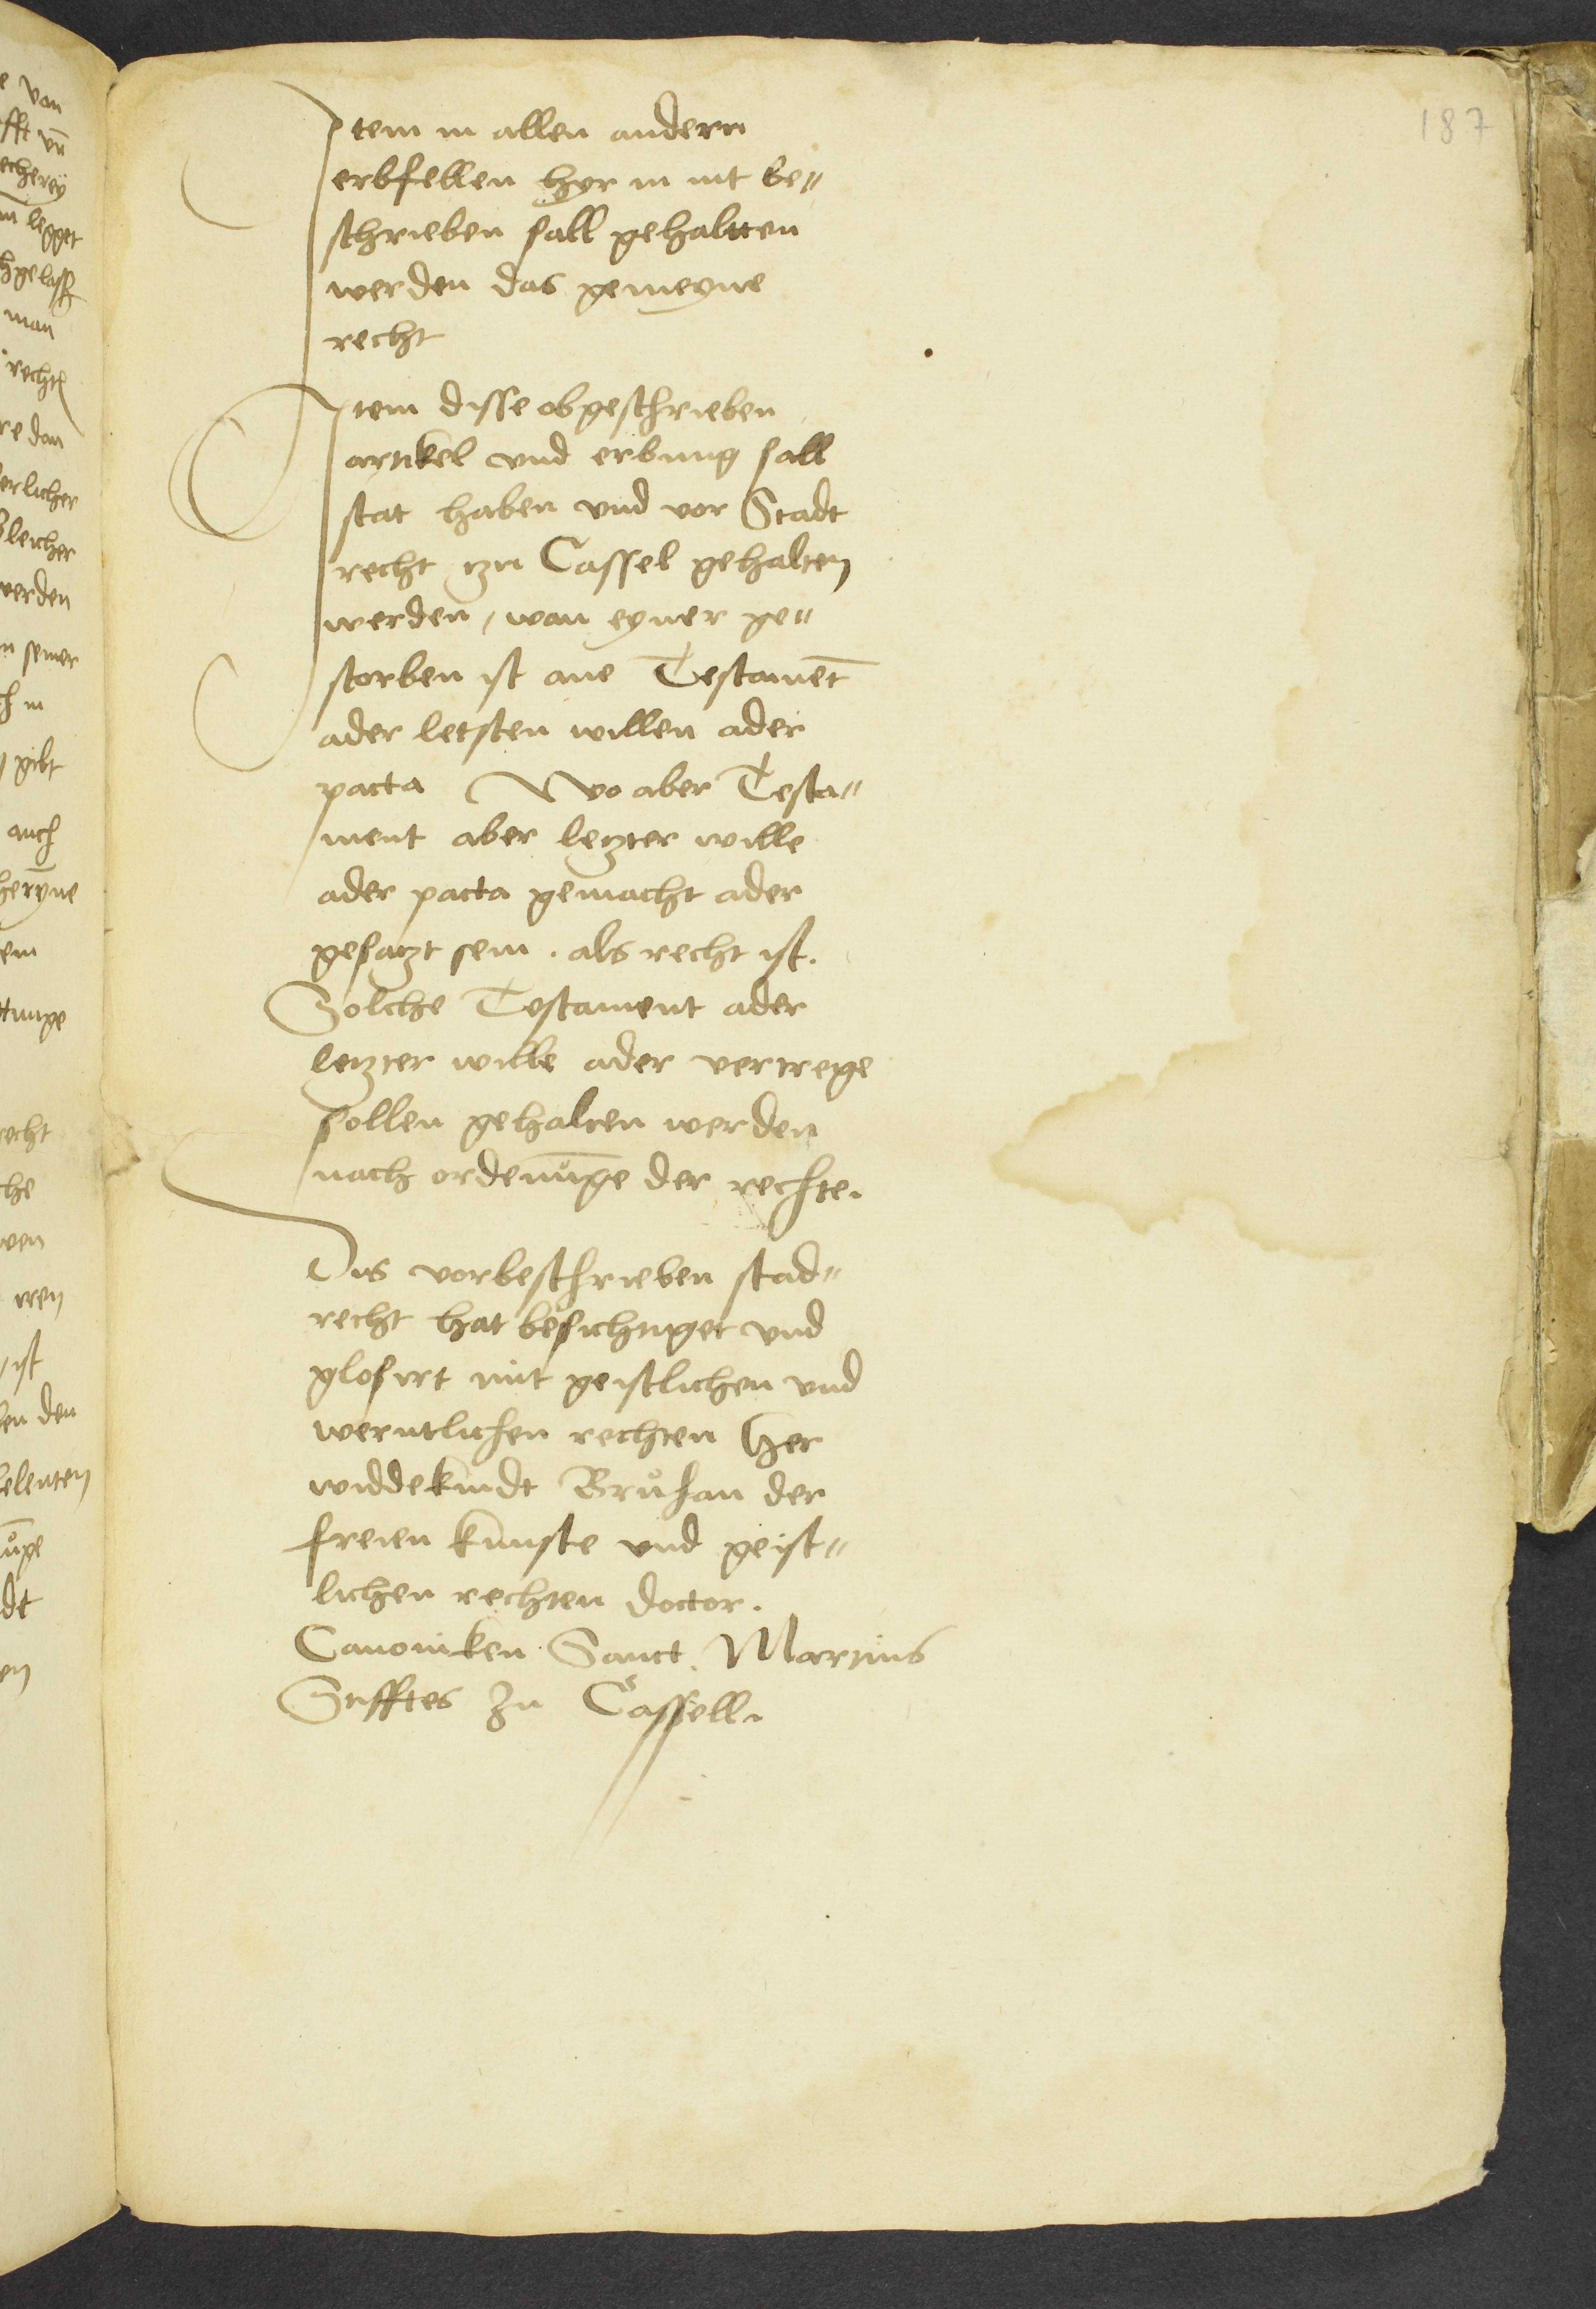 187
Item in allen andern
erbfellen hyr in nit be¬
schrieben sall gehaltten
werden das gemeyne
recht
Item disse obgeschrieben
artikel vnd erbung sall
stat haben vnd vor Stadt
recht tzu Cassel gehalten
werden, wan eyner ge¬
storben ist ane Testamēt
ader letsten willen ader
pacta Wo aber Testa¬
ment aber letzter wille
ader pacta gemacht ader
gesatzt sein . als recht ist.
Solche Testament ader
letzter wille ader vertrege
sollen gehalten werden
nach ordenūge der rechte.
Dis vorbeschrieben stad¬
recht hat besichtiget vnd
glosirt mit geistlichen vnd
werntlichen rechten Her
widdekindt Bruhan der
freien kunste vnd geist¬
lichen rechten doctor.
Canoniken Sanct. Martins
Stifftes zu Cassell.